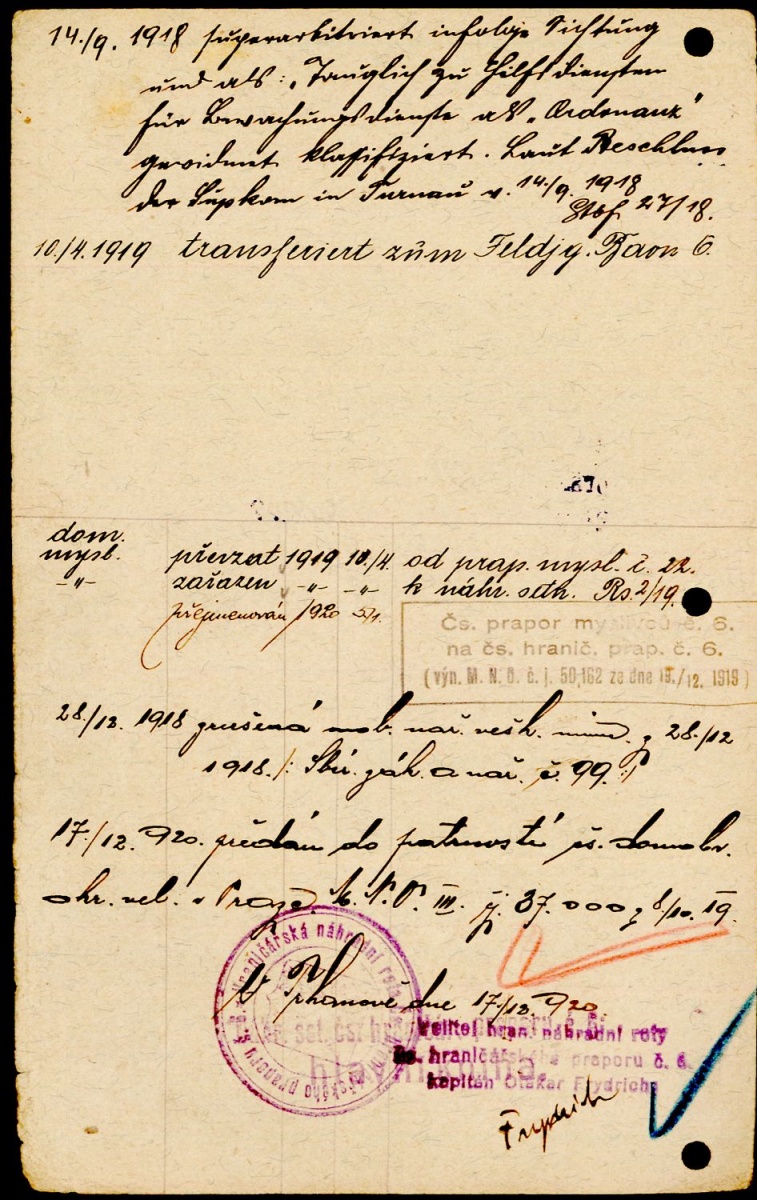 14./9. 1918 superarbitriert infolge Sichtung
und als: „Tauglich zu Hilfsdiensten
für Bewachungsdienste als „Ordonanz“
gewidmet klassifiziert. Laut Beschluss
der Supkom in Turnau v. 14./9. 1918
27/18.
10./4. 1919 transferiert zum Feldjg. Baon 6.
dom.
mysl. převzat 1919 10./4. od prap. mysl. č. 22.
-"- zařazen -"- -"- k náhr. setn. Rs. 2/19.
přejmenován 1920 5/1.
Čs. prapor myslivců č. 6.
na čs. hranič. prap. č. 6.
(výn. M. N. O. č. j. 50,162 ze dne 19./12. 1919)
28./12. 1918 zrušená mob. nař. z 28./12
1918. /: Sbír. zák. a nař. č. 99. :/
17./12. 920. předán do čs. domobr.
okr. vel. v Praze, III. čj. 37.000 z 8/10. 19.
dne 17./12. 920
Velitel hran. náhradní roty
čs. hraničářského praporu č. 6
kapitán Otakar Frydrich
hlavní kniha
Frydrich